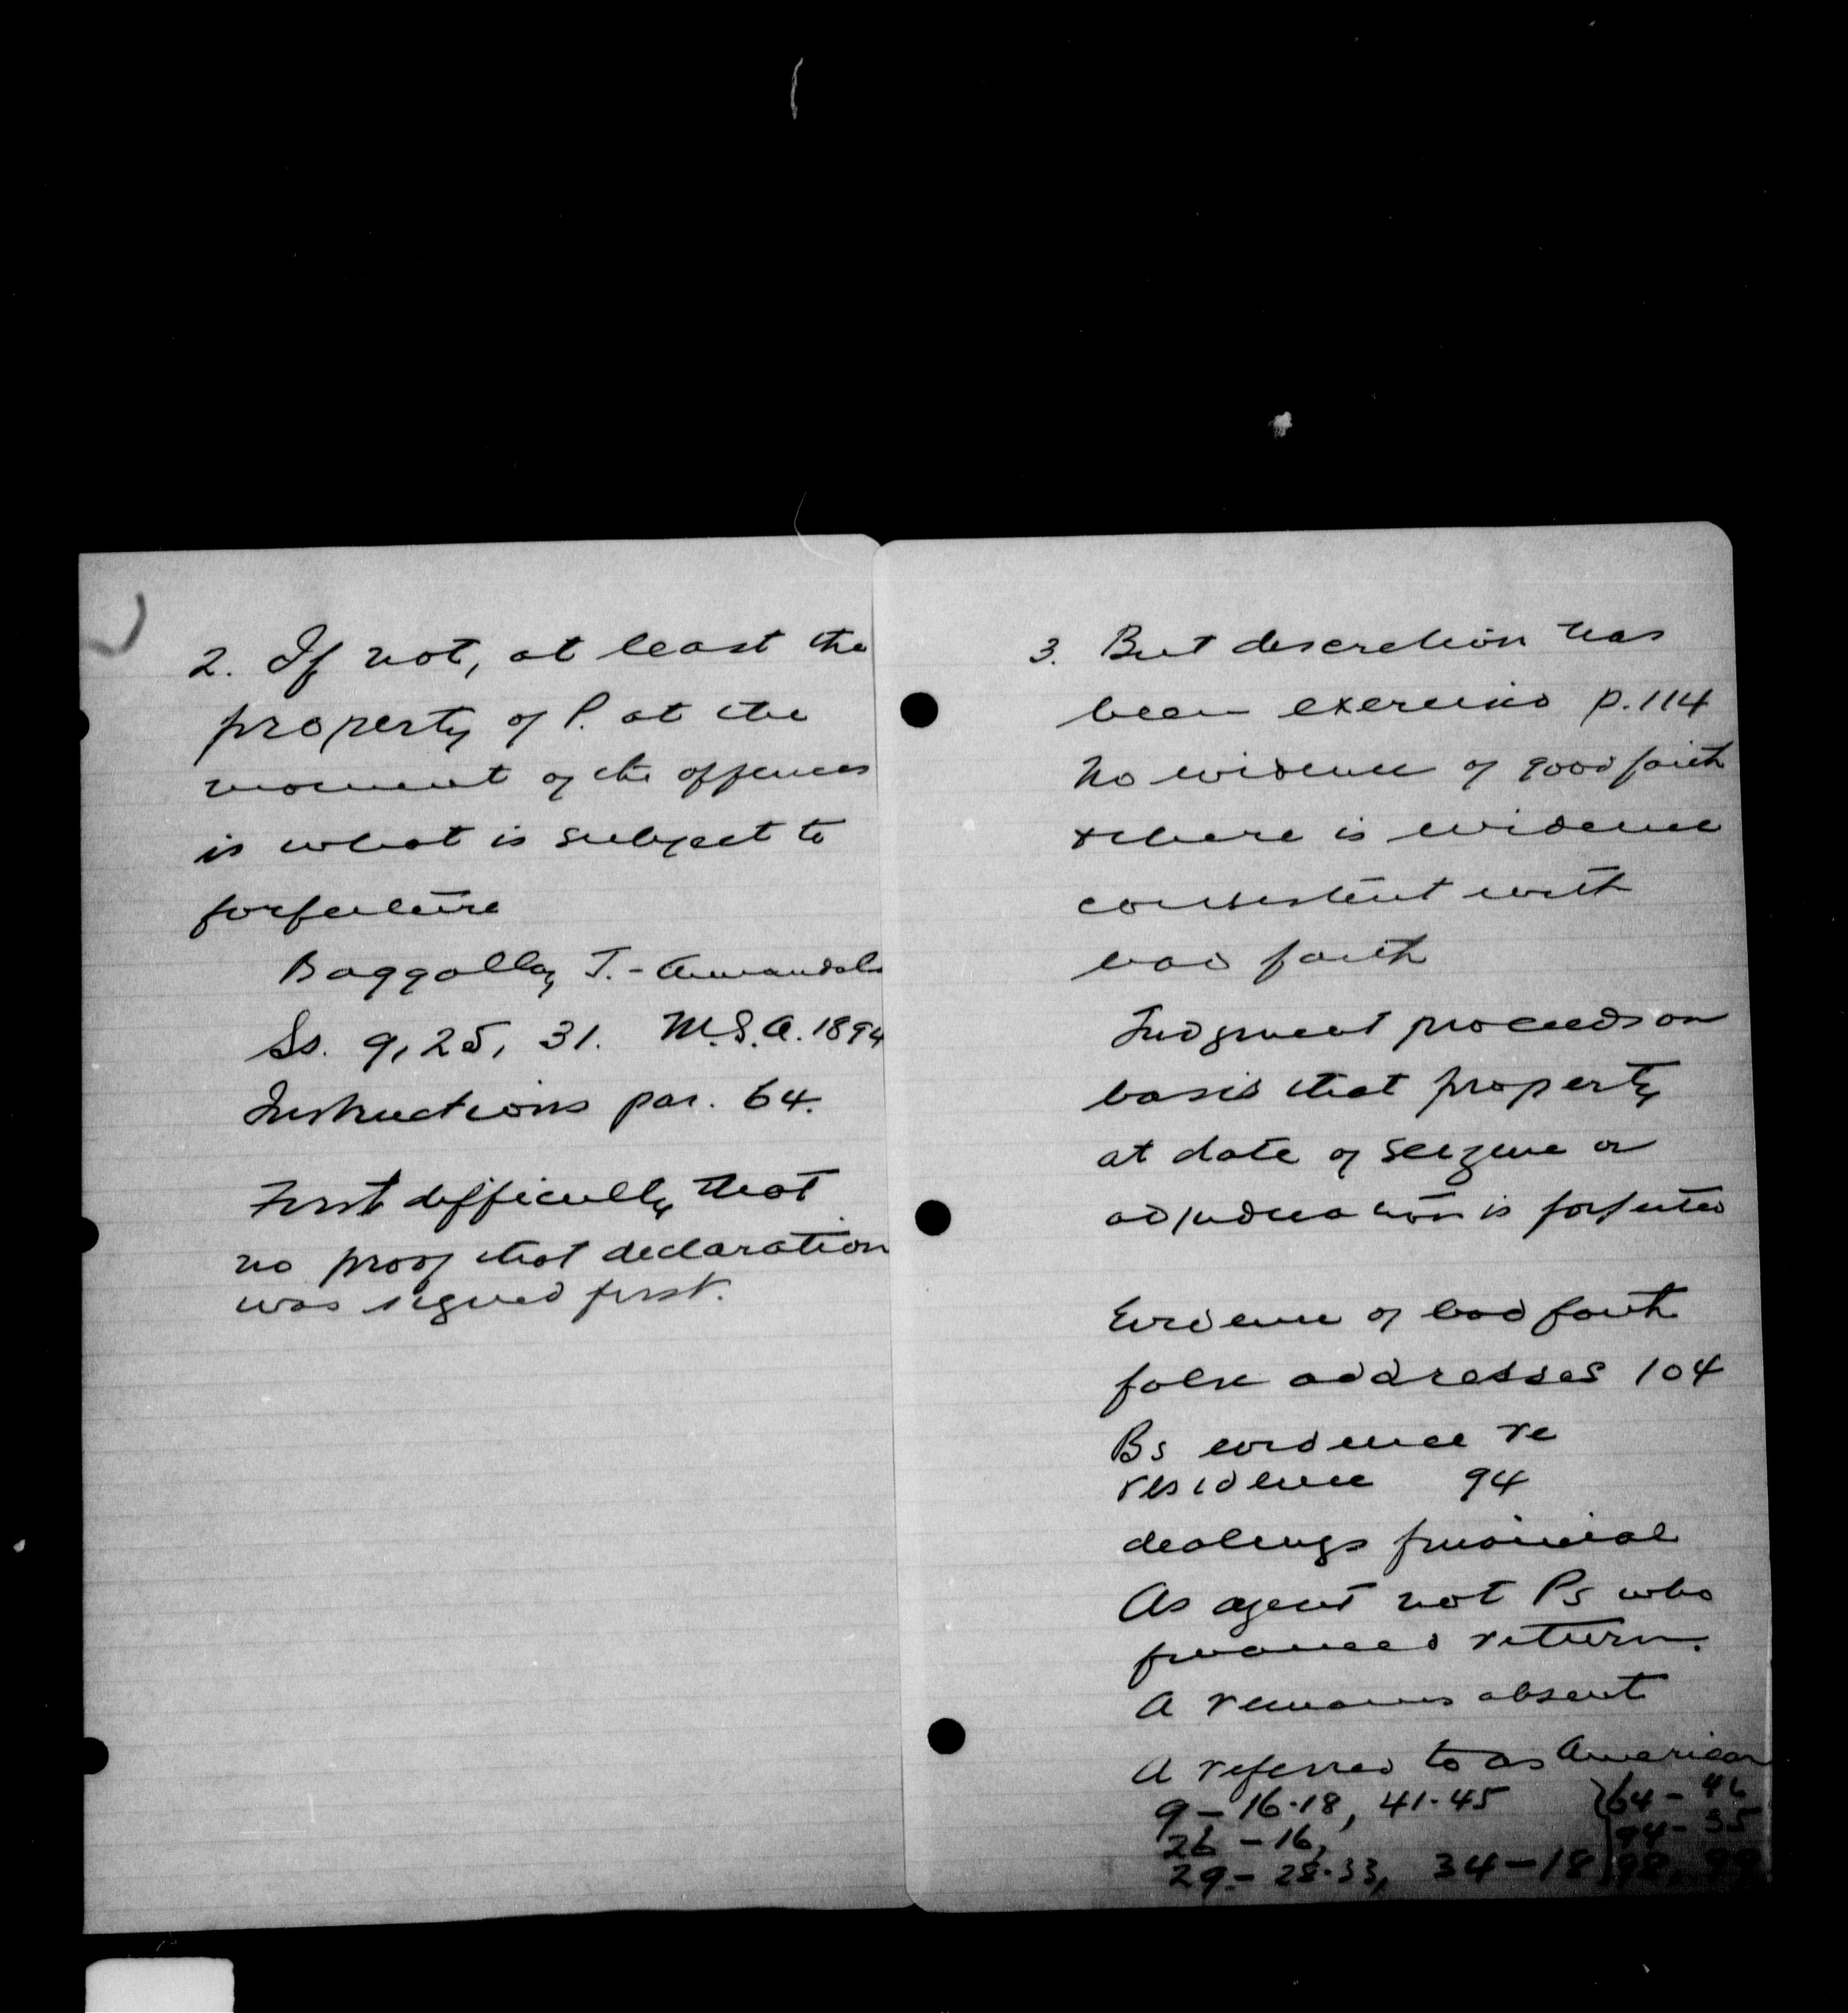 2. If not, at least the
property of P. at the
moment of the offences
is what is subject to
forfeiture
Baggallay, J. - Annandale
Ss. 9, 25, 31. M.S.A. 1894
Instructions par. 64.
First difficulty that
no proof that declaration
was signed first.
3. But discretion has
been exercised p. 114
No evidence of good faith
& there is evidence
consistent with
bad faith
Judgment proceeds on
basis that property
at date of seizure or
adjudication is forfeited
Evidence of bad faith
false addresses 104
Bs evidence re
residence 94
dealings financial
As agent not Ps who
financed return.
A remains absent
A referred to as American
9 - 16-18, 41-45 64 - 46
26 - 16, 94 - 35
29 - 28-33, 34 - 18 98, 99